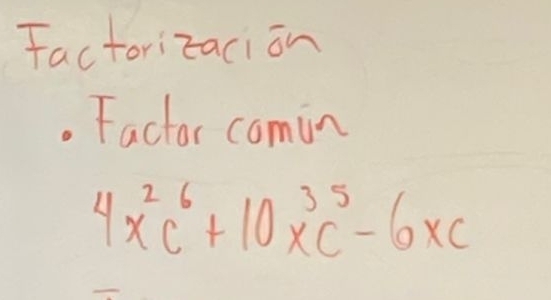 Factorización
. Factor común
4x²c⁶ + 10x³c⁵ - 6xc